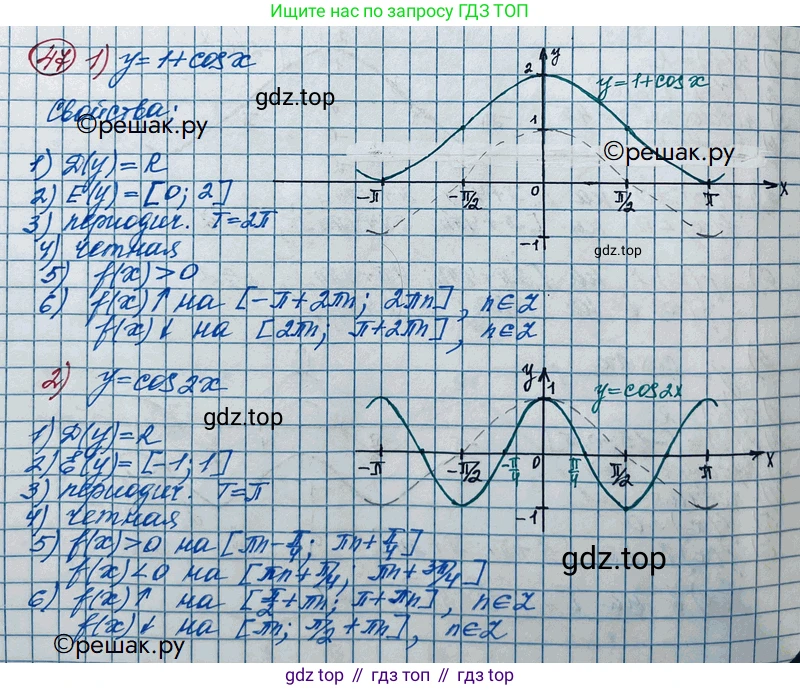 Ищите нас по запросу ГДЗ ТОП
47 1) y = 1 + cos x
Свойства:
gdz.top
©решак.ру
1) D(y) = R
2) E(y) = [0; 2]
3) периодич. T = 2π
4) четная
5) f(x) > 0
6) f(x) ↑ на [-π + 2πn; 2πn], n ∈ Z
f(x) ↓ на [2πn; π + 2πn], n ∈ Z
2 y
y = 1 + cos x
1
©решак.ру
-π -π/2 0 π/2 π x
-1
gdz.top
2) y = cos 2x
gdz.top
1) D(y) = R
2) E(y) = [-1; 1]
3) периодич. T = π
4) четная
5) f(x) > 0 на [πn - π/4; πn + π/4]
f(x) < 0 на [πn + π/4; πn + 3π/4]
6) f(x) ↑ на [π/2 + πn; π + πn], n ∈ Z
f(x) ↓ на [πn; π/2 + πn], n ∈ Z
©решак.ру
y 1
y = cos 2x
-π -π/2 -π/4 0 π/4 π/2 π x
-1
gdz.top
gdz top // гдз топ // гдз.top